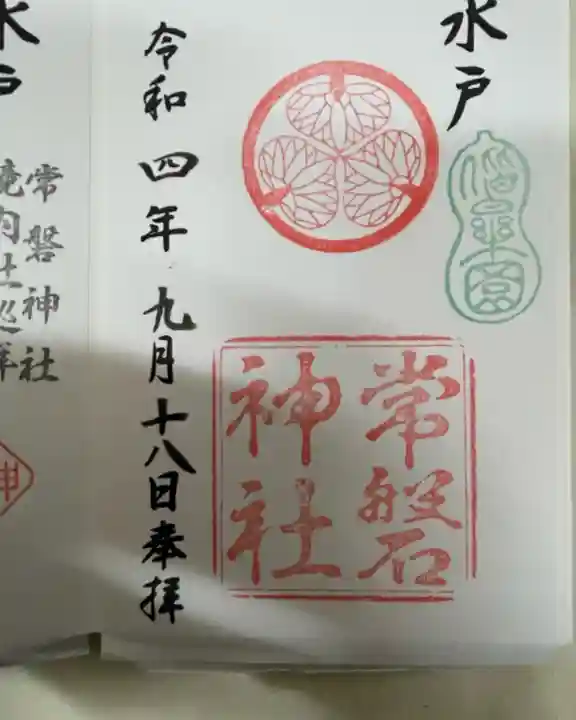 水戸
偕楽園
常磐
神社
令和四年九月十八日奉拝
水戸
常磐神社
境内社巡拝
神